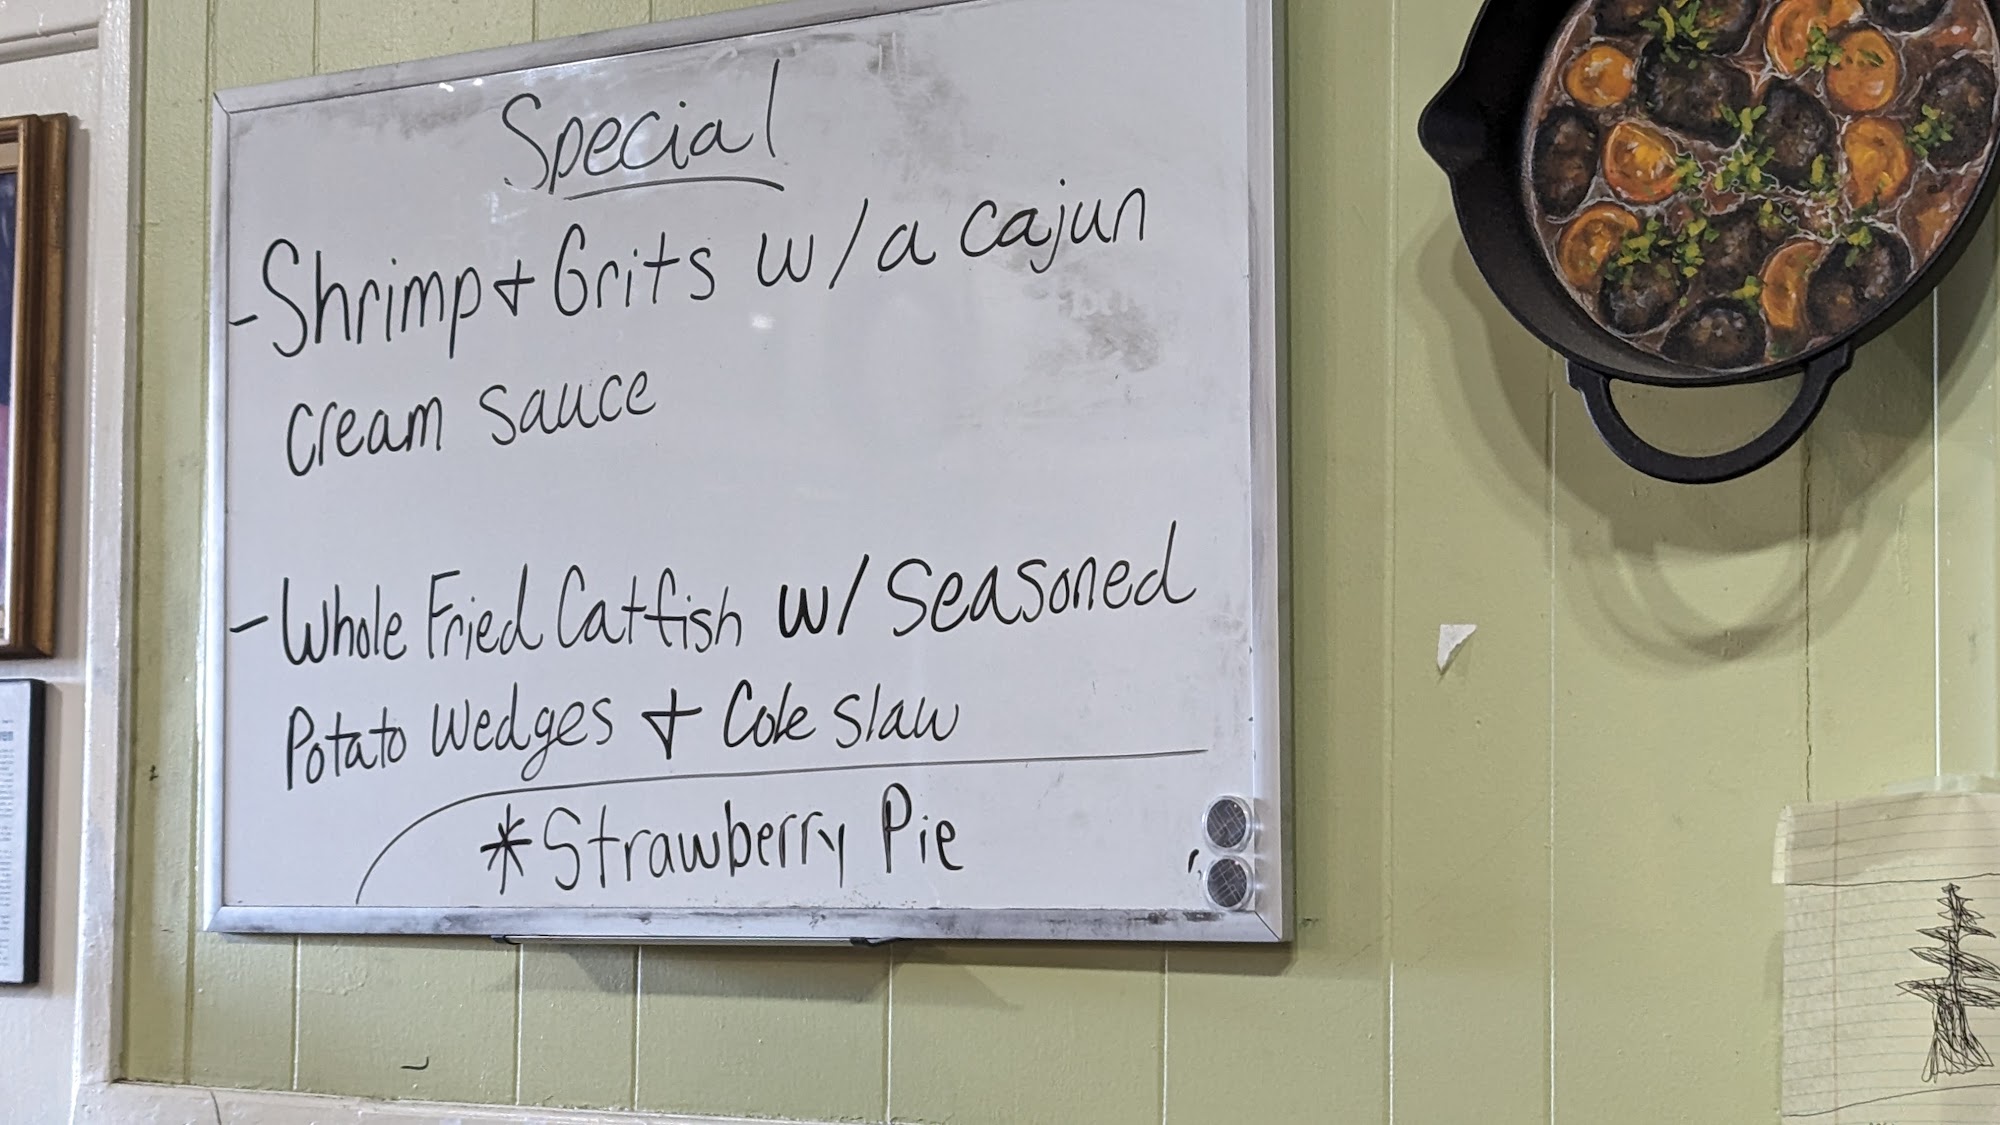 Special
- Shrimp + Grits w/a cajun
cream sauce
- Whole Fried Catfish w/ Seasoned
Potato Wedges + Cole slaw
* Strawberry Pie